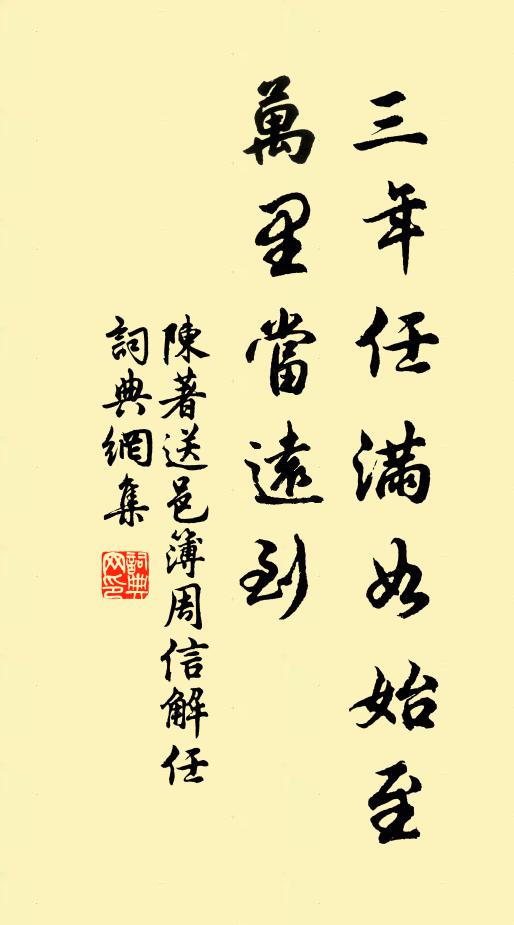 三年任滿如始至
萬里當遠到
陳著送邑簿周信解任
詞典網集
詞典网印